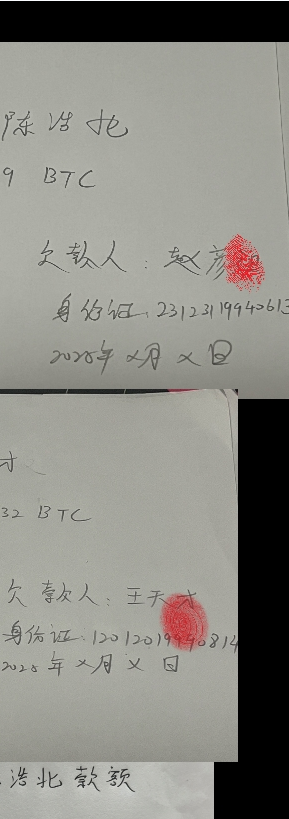 陈浩北
9 BTC
欠款人：赵彦
身份证：23123119940613
2025年X月X日
才
32 BTC
欠款人：王天才
身份证：12012019940814
2025年X月X日
浩北款额